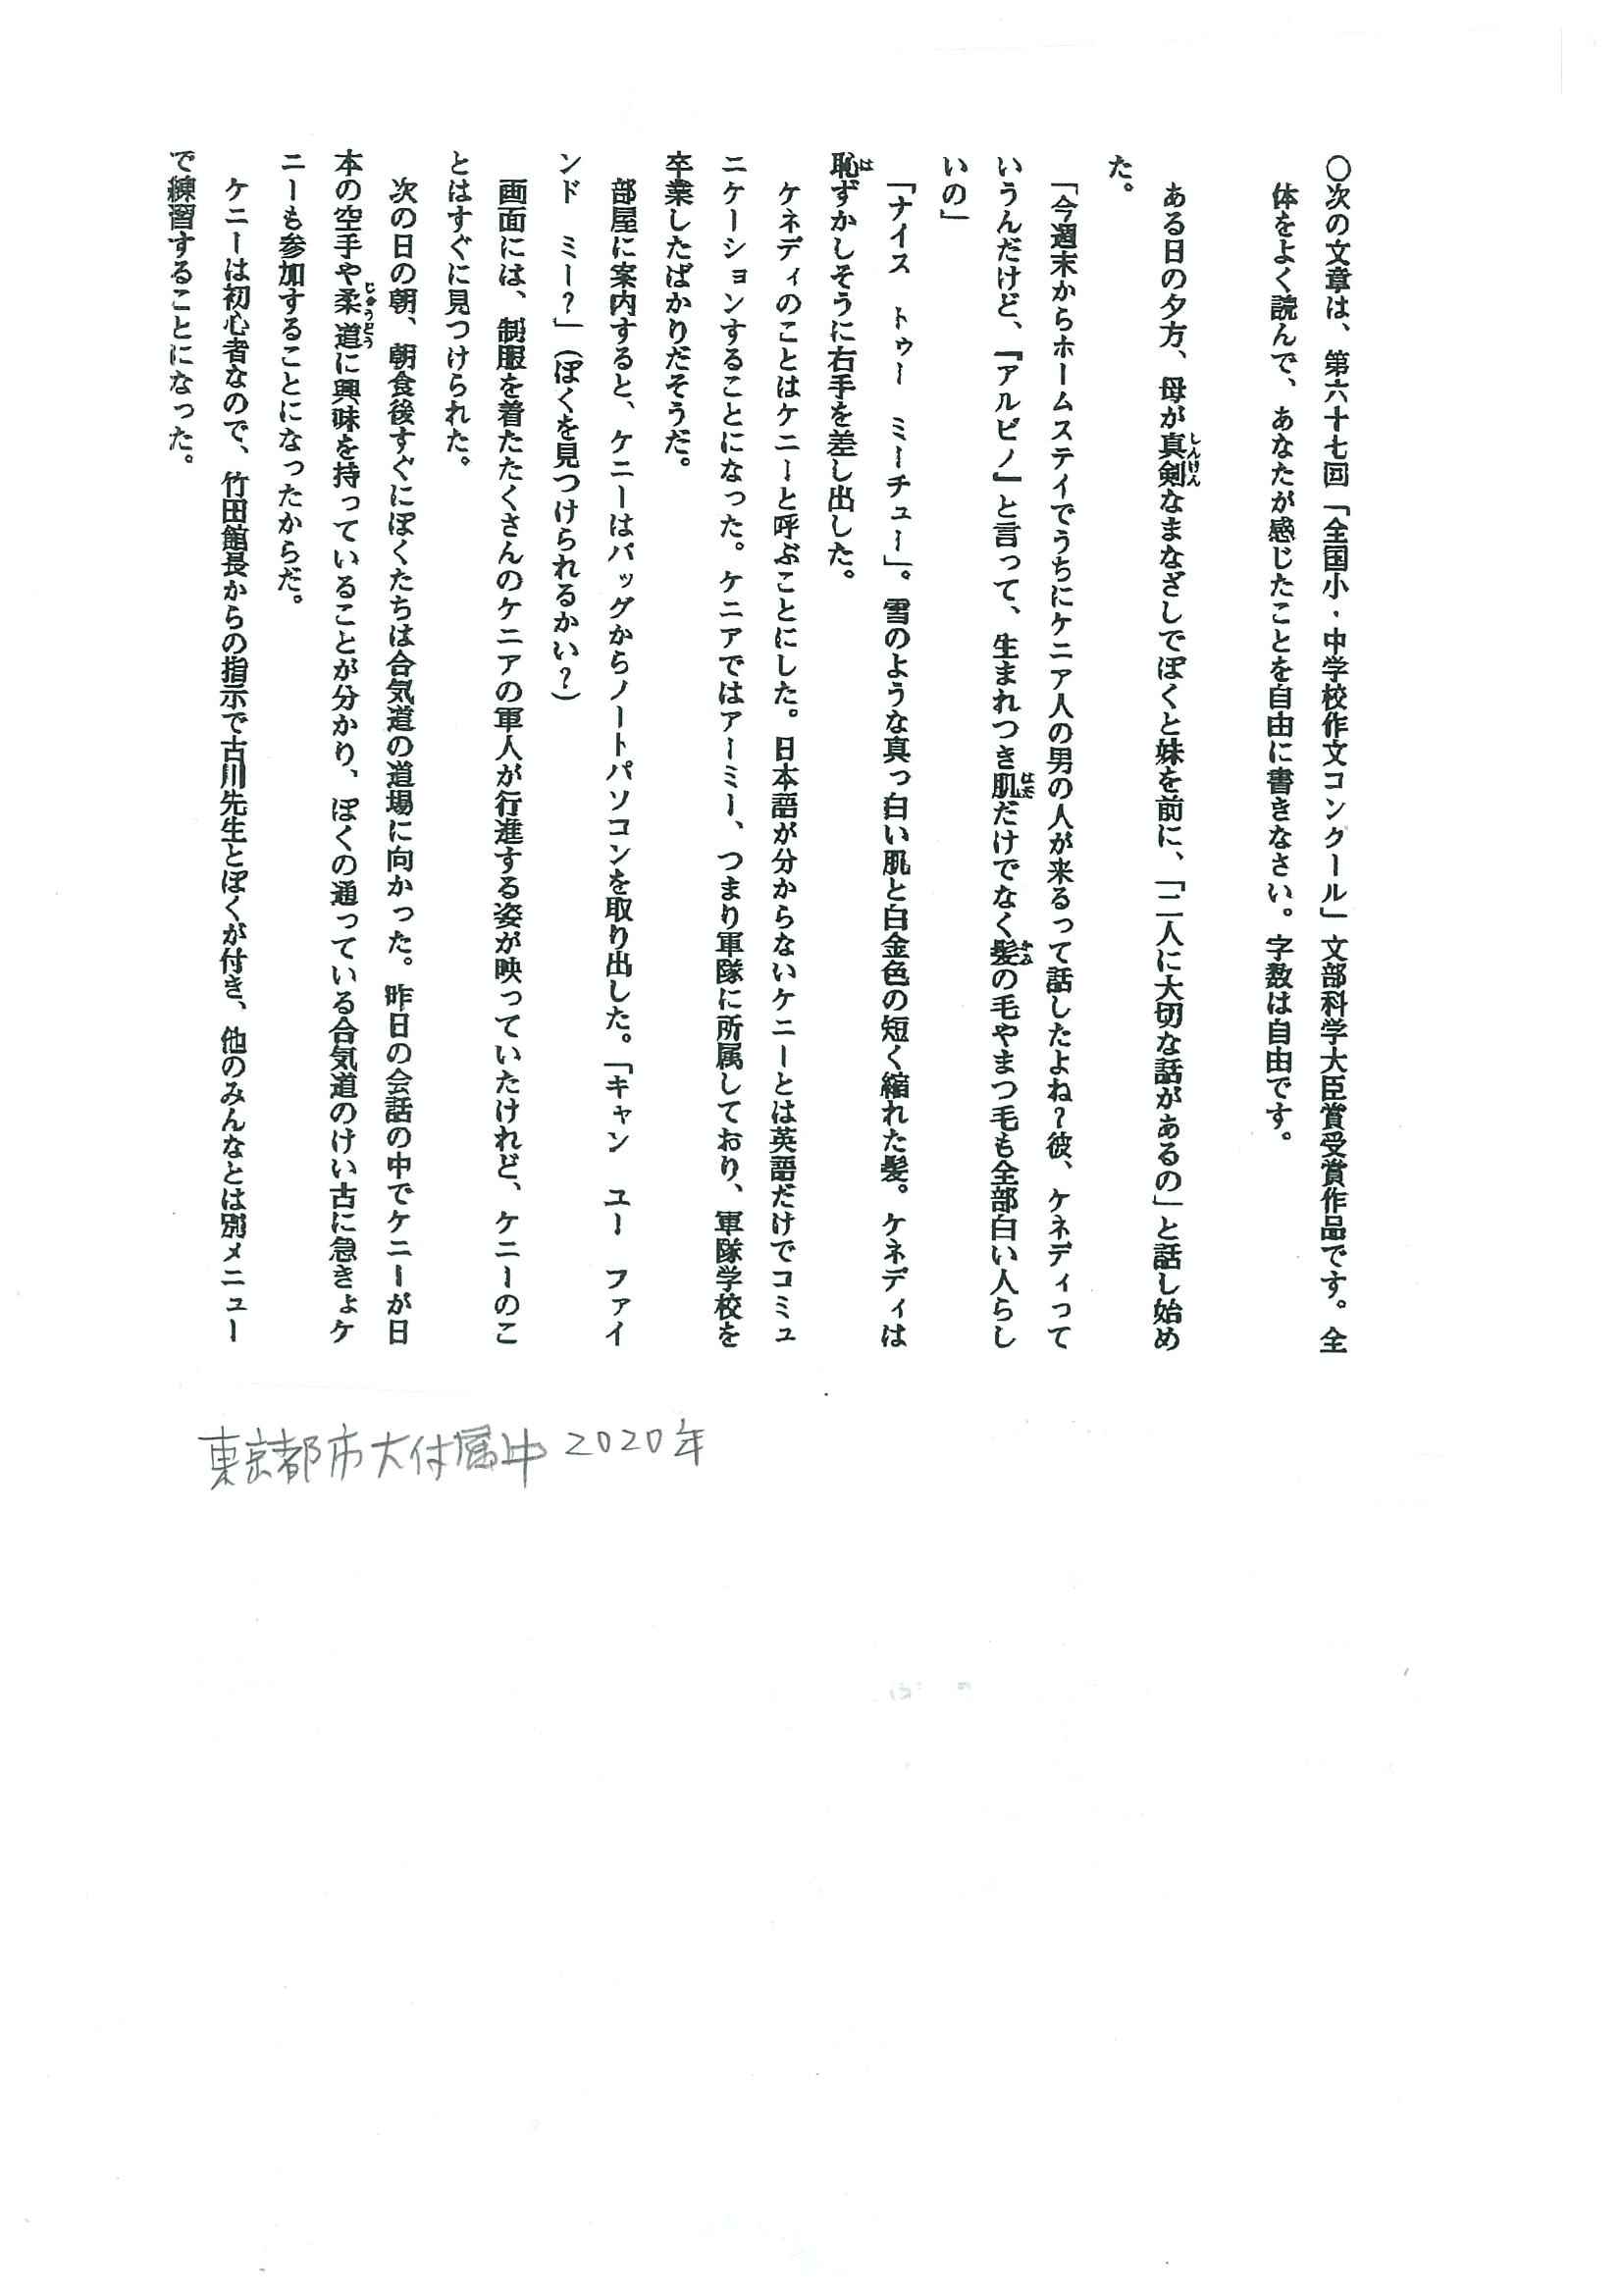 〇次の文章は、第六十七回「全国小・中学校作文コンクール」文部科学大臣賞受賞作品です。全
体をよく読んで、あなたが感じたことを自由に書きなさい。字数は自由です。
ある日の夕方、母が真剣なまなざしでぼくと妹を前に、「二人に大切な話があるの」と話し始め
た。
「今週末からホームステイでうちにケニア人の男の人が来るって話したよね?彼、ケネディって
いうんだけど、『アルビノ』と言って、生まれつき肌だけでなく髪の毛やまつ毛も全部白い人らし
いの」
「ナイス トゥー ミーチュー」。雪のような真っ白い肌と白金色の短く縮れた髪。ケネディは
恥ずかしそうに右手を差し出した。
ケネディのことはケニーと呼ぶことにした。日本語が分からないケニーとは英語だけでコミュ
ニケーションすることになった。ケニアではアーミー、つまり軍隊に所属しており、軍隊学校を
卒業したばかりだそうだ。
部屋に案内すると、ケニーはバッグからノートパソコンを取り出した。「キャン ユー ファイ
ンド ミー?」(ぼくを見つけられるかい?)
画面には、制服を着たたくさんのケニアの軍人が行進する姿が映っていたけれど、ケニーのこ
とはすぐに見つけられた。
次の日の朝、朝食後すぐにぼくたちは合気道の道場に向かった。昨日の会話の中でケニーが日
本の空手や柔道に興味を持っていることが分かり、ぼくの通っている合気道のけい古に急きょケ
ニーも参加することになったからだ。
ケニーは初心者なので、竹田館長からの指示で古川先生とぼくが付き、他のみんなとは別メニュー
で練習することになった。
東京都市大付属中 2020年